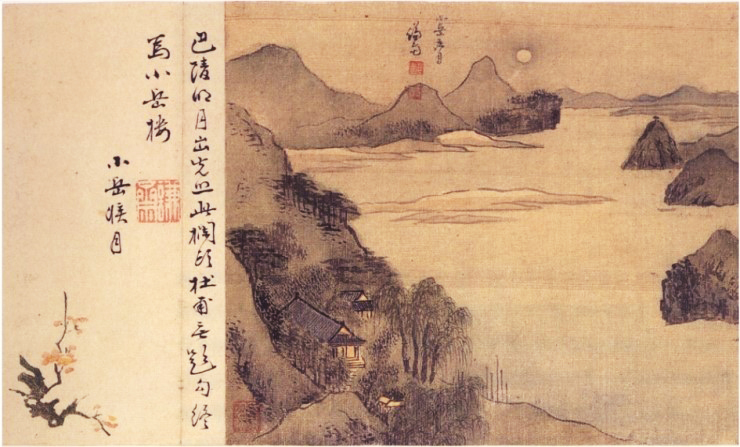 小岳候月
謙齋
巴陵明月出先照此欄頭杜甫無題句終
爲小岳樓
小岳候月